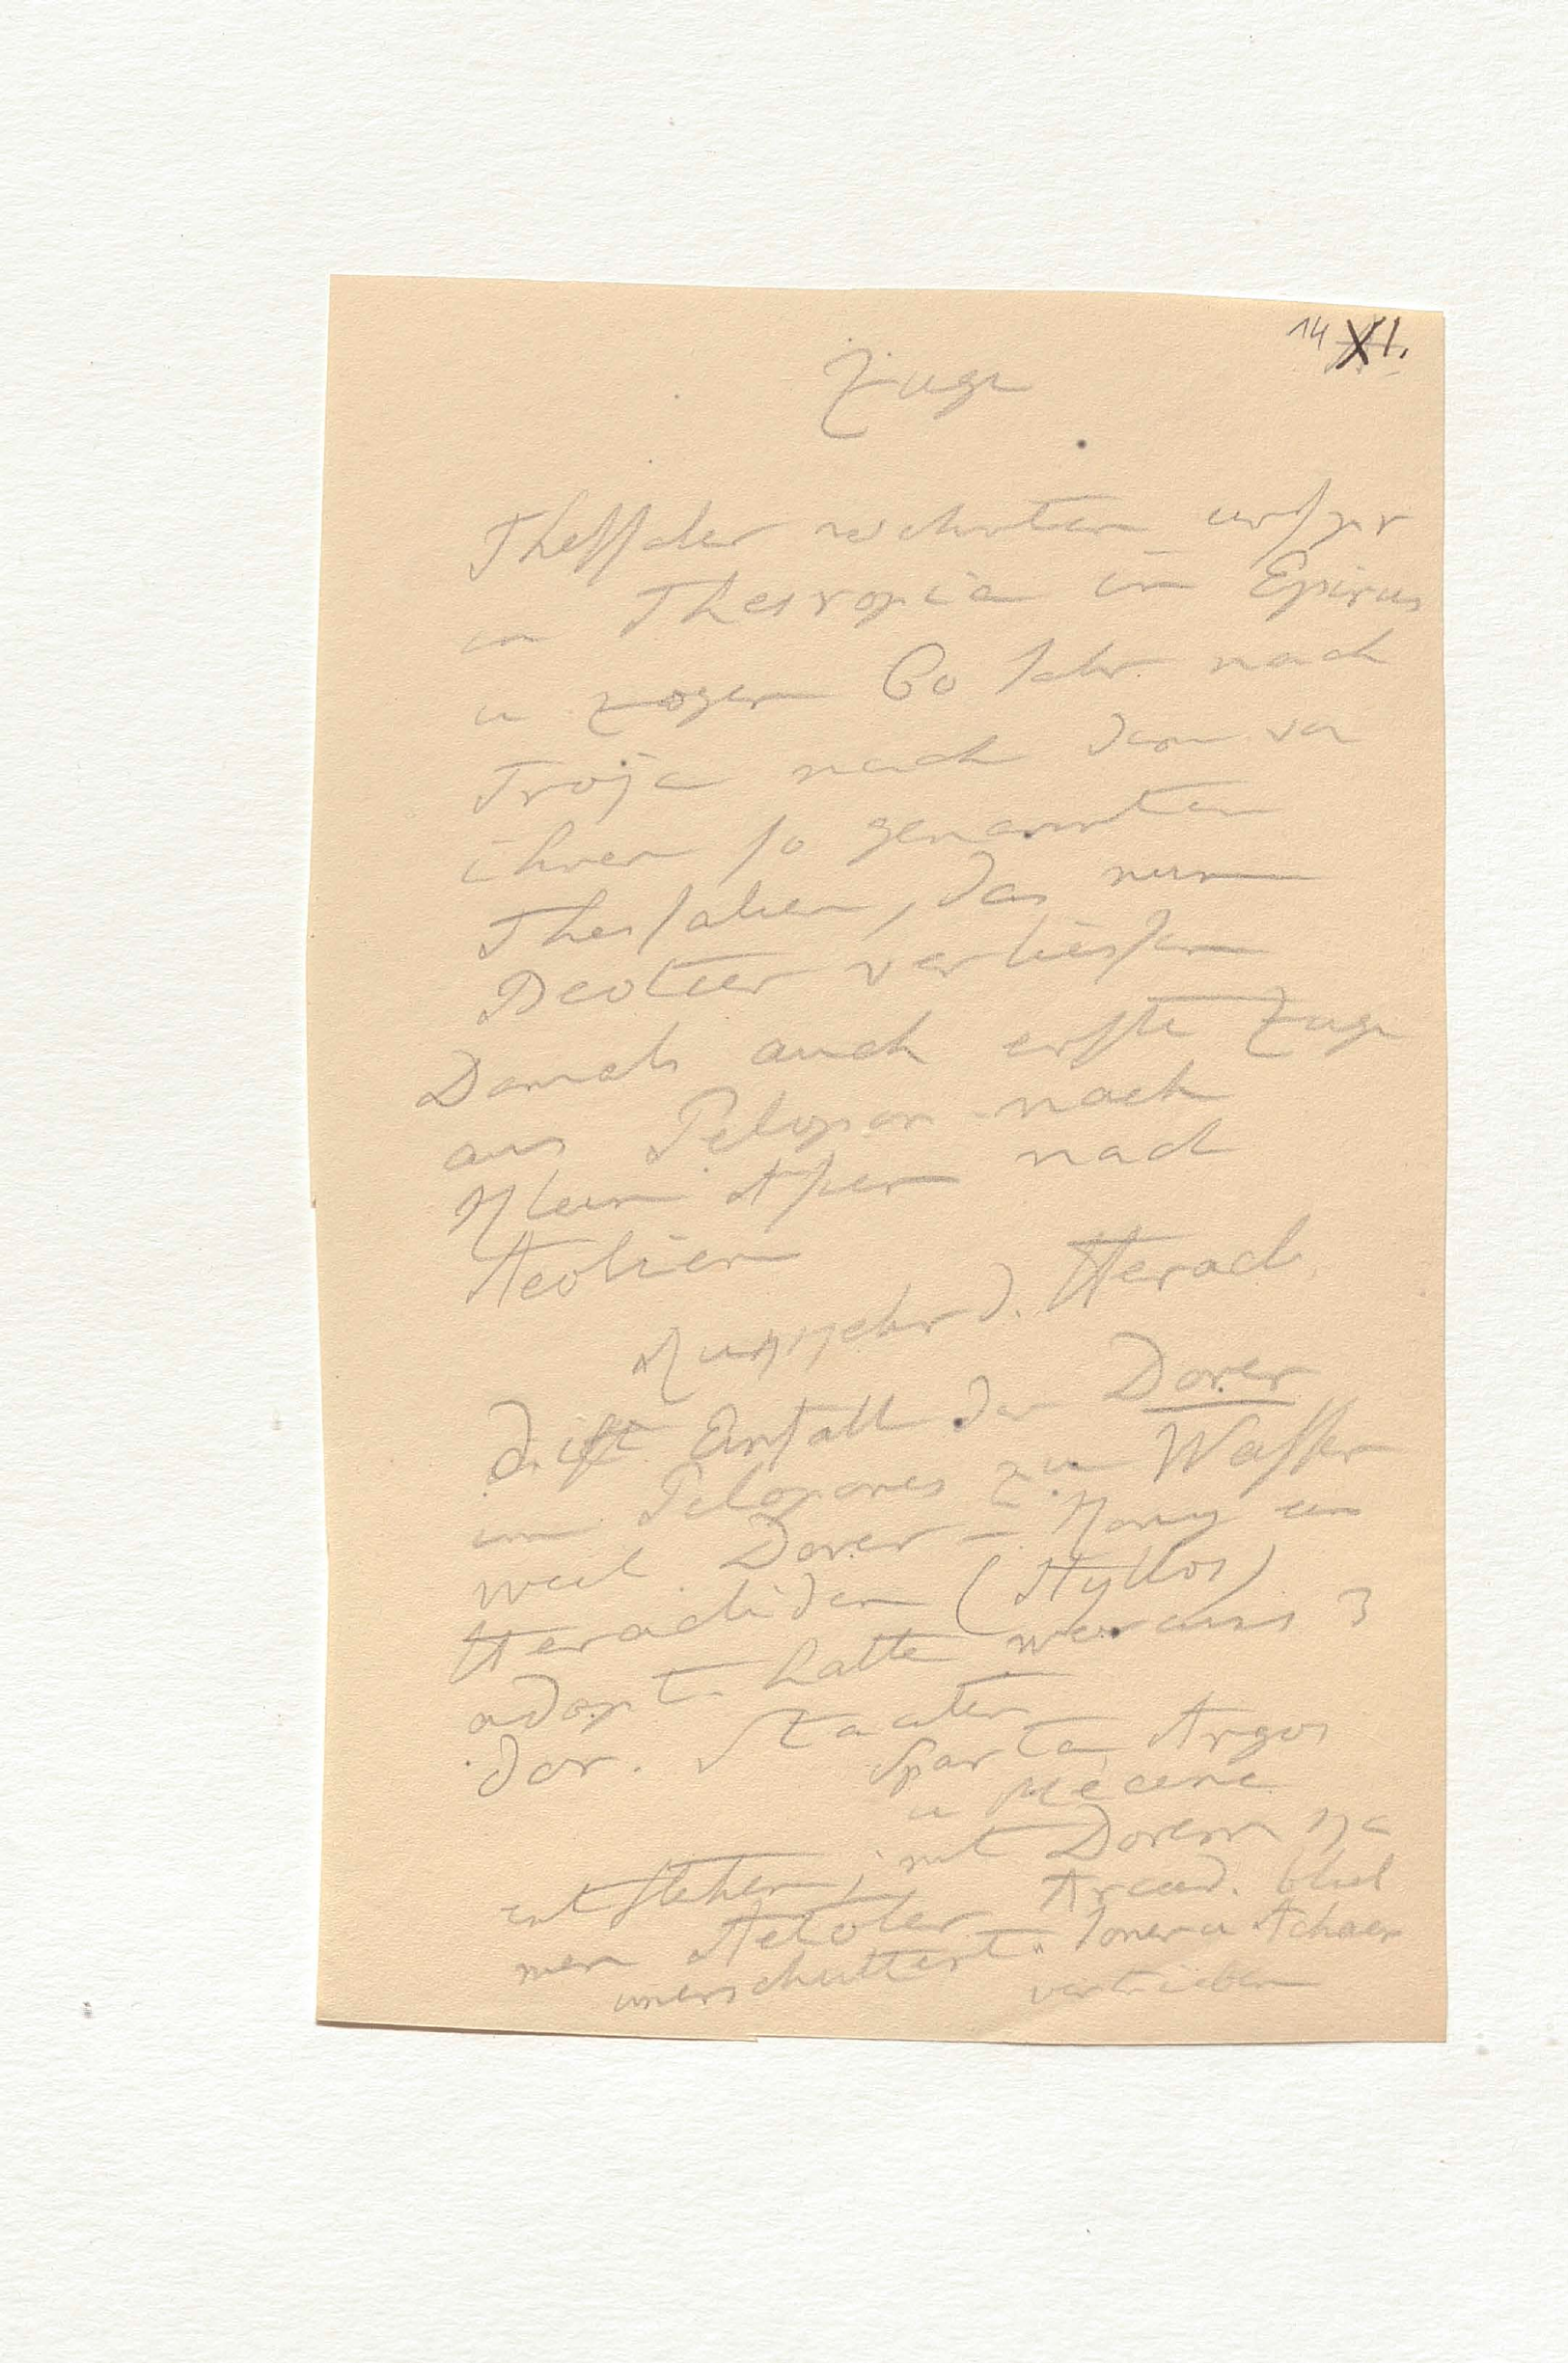 14 XI.
Züge
Thessaler wohnten urspr
in Thesropia in Epirus
u zogen 60 Jahr nach
Troja nach dem von
ihnen so genannten
Thessalien, das nun
Beotier verliessen
Damals auch erste Züge
aus Pelopon. nach
Klein Asien nach
Aeolien
Rückkehr d. Heracl.
d. ist Einfall der Dorer
im Pelopones zu Wasser
weil Dorer-König ein
Heracliden (Hyllos)
adopt. hatte woraus 3
dor. Staaten
Sparta Argos
u Mecene
entstehen; mit Dorern ka
men Aetoler Arcad. blieb
unerschuttert. Ioner u Achaer
vertrieben